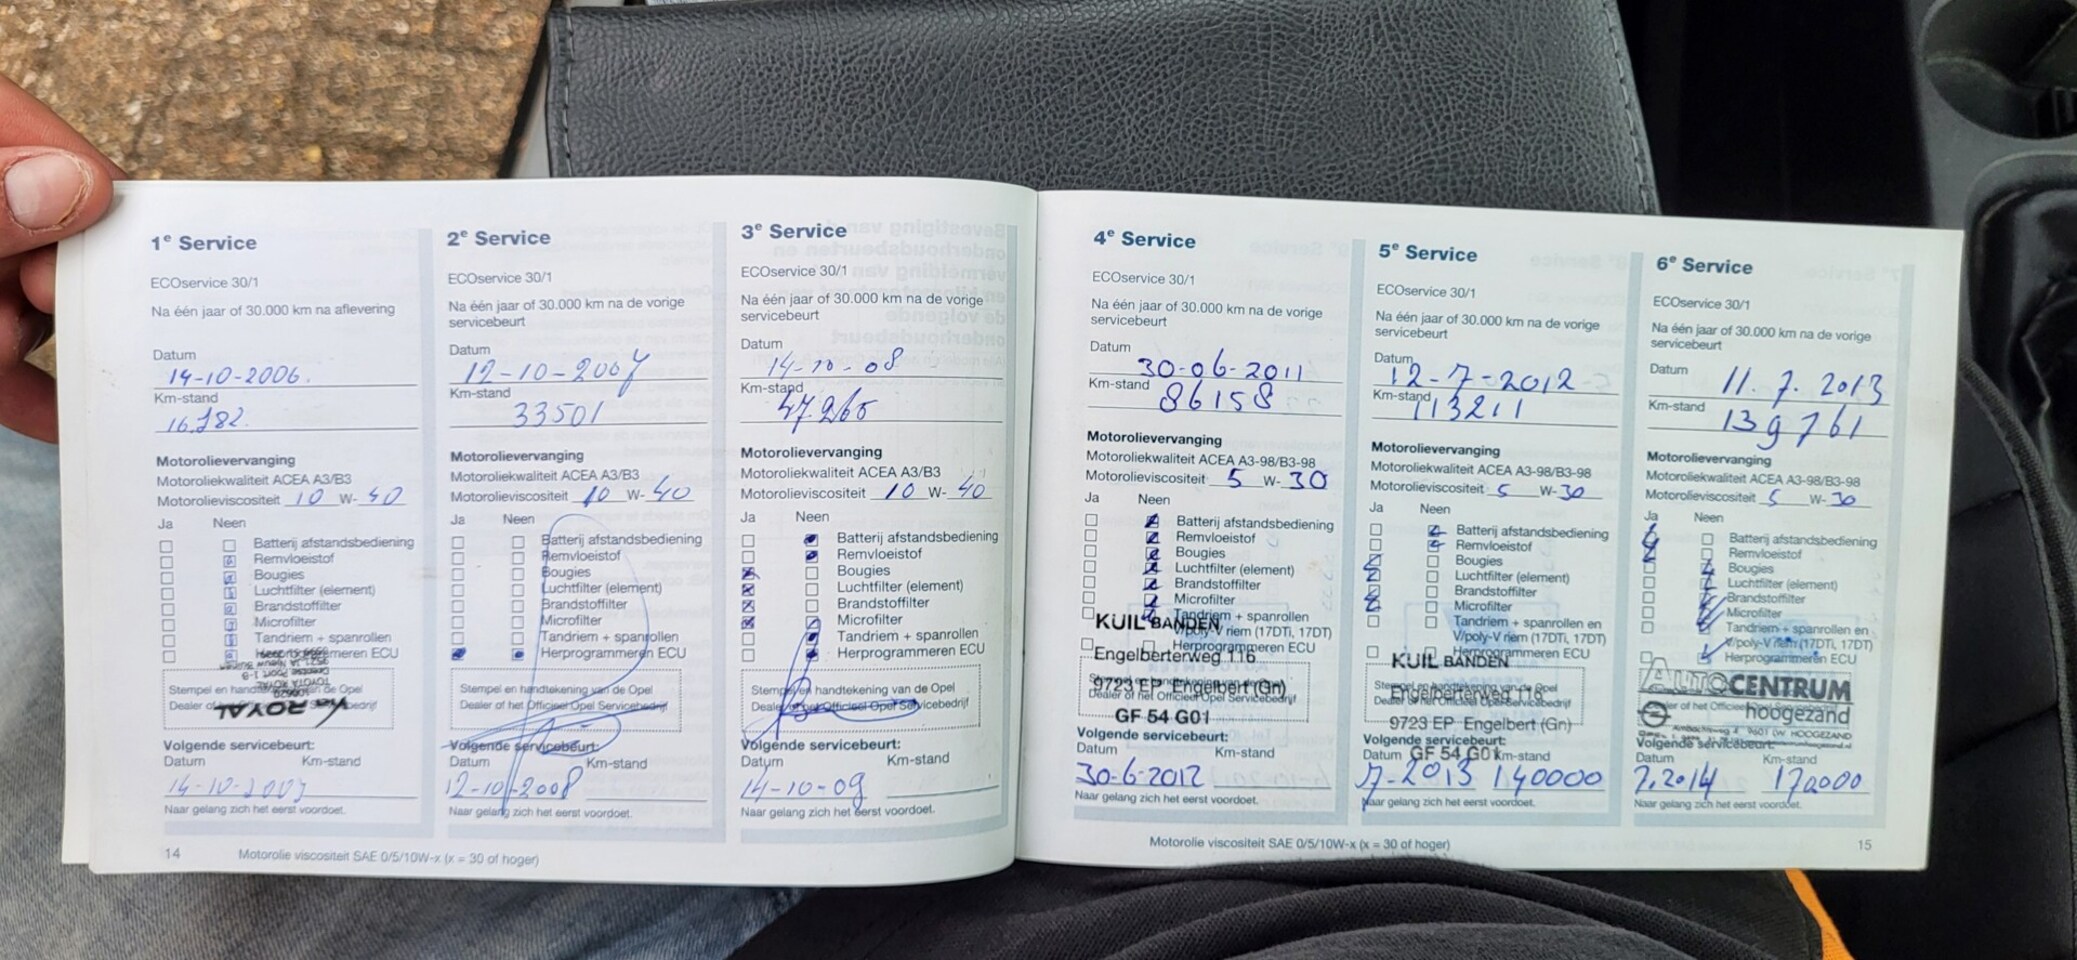 1e Service
ECOservice 30/1
Na één jaar of 30.000 km na aflevering
Datum
14-10-2006.
Km-stand
Motorolievervanging
Motoroliekwaliteit ACEA A3/B3
Motorolieviscositeit 10 W-40
Ja Neen
Batterij afstandsbediening
Remvloeistof
Bougies
Luchtfilter (element)
Brandstoffilter
Microfilter
Tandriem + spanrollen
Herprogrammeren ECU
Stempel en handtekening van de Opel
Dealer of het Officieel Opel Servicebedrijf
ROYAL
Volgende servicebeurt:
Datum Km-stand
14-10-2007
Naar gelang zich het eerst voordoet.
14
Motorolie viscositeit SAE 0/5/10W-x (x = 30 of hoger)
2e Service
ECOservice 30/1
Na één jaar of 30.000 km na de vorige
servicebeurt
Datum
12-10-2007
Km-stand
33501
Motorolievervanging
Motoroliekwaliteit ACEA A3/B3
Motorolieviscositeit 10 W-40
Ja Neen
Batterij afstandsbediening
Remvloeistof
Bougies
Luchtfilter (element)
Brandstoffilter
Microfilter
Tandriem + spanrollen
Herprogrammeren ECU
Stempel en handtekening van de Opel
Dealer of het Officieel Opel Servicebedrijf
Volgende servicebeurt:
Datum Km-stand
12-10-2008
Naar gelang zich het eerst voordoet.
3e Service
ECOservice 30/1
Na één jaar of 30.000 km na de vorige
servicebeurt
Datum
14-10-08
Km-stand
Motorolievervanging
Motoroliekwaliteit ACEA A3/B3
Motorolieviscositeit 10 W-40
Ja Neen
Batterij afstandsbediening
Remvloeistof
Bougies
Luchtfilter (element)
Brandstoffilter
Microfilter
Tandriem + spanrollen
Herprogrammeren ECU
Stempel en handtekening van de Opel
Dealer of het Officieel Opel Servicebedrijf
Volgende servicebeurt:
Datum Km-stand
14-10-09
Naar gelang zich het eerst voordoet.
4e Service
ECOservice 30/1
Na één jaar of 30.000 km na de vorige
servicebeurt
Datum
30-06-2011
Km-stand 86158
Motorolievervanging
Motoroliekwaliteit ACEA A3-98/B3-98
Motorolieviscositeit 5 W-30
Ja Neen
Batterij afstandsbediening
Remvloeistof
Bougies
Luchtfilter (element)
Brandstoffilter
Microfilter
Tandriem + spanrollen
V/poly-V riem (17DTi, 17DT)
Herprogrammeren ECU
KUIL BANDEN
Engelberterweg 116
9723 EP Engelbert (Gn)
GF 54 G01
Stempel en handtekening van de Opel
Dealer of het Officieel Opel Servicebedrijf
Volgende servicebeurt:
Datum Km-stand
30-6-2012
Naar gelang zich het eerst voordoet.
Motorolie viscositeit SAE 0/5/10W-x (x = 30 of hoger)
5e Service
ECOservice 30/1
Na één jaar of 30.000 km na de vorige
servicebeurt
Datum
12-7-2012
Km-stand 113211
Motorolievervanging
Motoroliekwaliteit ACEA A3-98/B3-98
Motorolieviscositeit 5 W-30
Ja Neen
Batterij afstandsbediening
Remvloeistof
Bougies
Luchtfilter (element)
Brandstoffilter
Microfilter
Tandriem + spanrollen en
V/poly-V riem (17DTi, 17DT)
Herprogrammeren ECU
KUIL BANDEN
Engelberterweg 116
9723 EP Engelbert (Gn)
GF 54 G01
Stempel en handtekening van de Opel
Dealer of het Officieel Opel Servicebedrijf
Volgende servicebeurt:
Datum Km-stand
7-2013 140000
Naar gelang zich het eerst voordoet.
6e Service
ECOservice 30/1
Na één jaar of 30.000 km na de vorige
servicebeurt
Datum
11.7.2013
Km-stand
139761
Motorolievervanging
Motoroliekwaliteit ACEA A3-98/B3-98
Motorolieviscositeit 5 W-30
Ja Neen
Batterij afstandsbediening
Remvloeistof
Bougies
Luchtfilter (element)
Brandstoffilter
Microfilter
Tandriem + spanrollen en
V/poly-V riem (17DTi, 17DT)
Herprogrammeren ECU
AUTOCENTRUM
hoogezand
Volgende servicebeurt:
Datum Km-stand
7.2014 170000
Naar gelang zich het eerst voordoet.
15